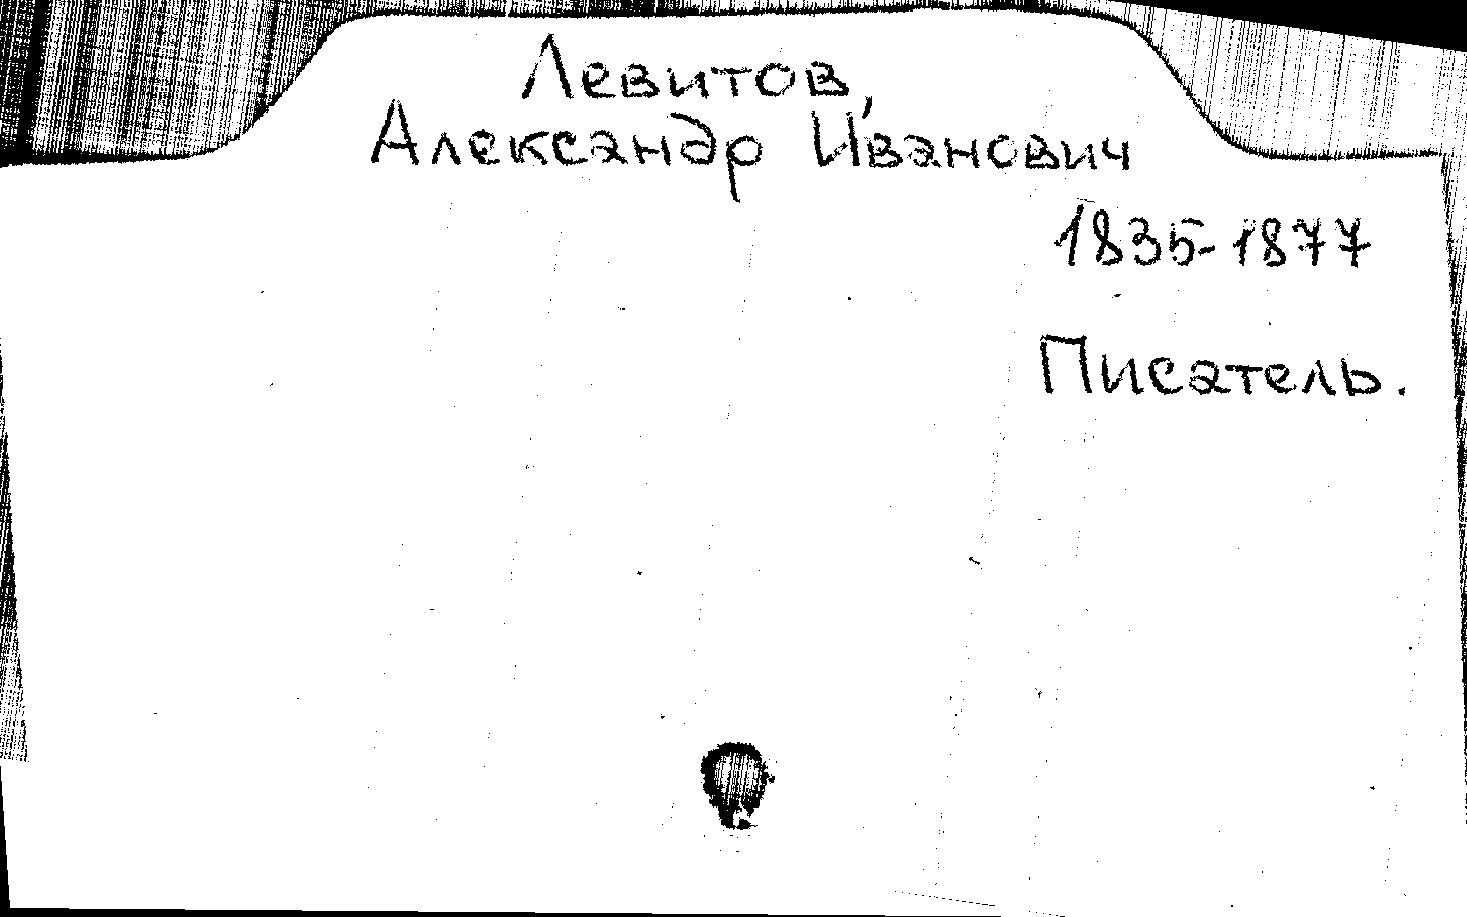 Левитов,
Александр Иванович
1835-1877
Писатель.